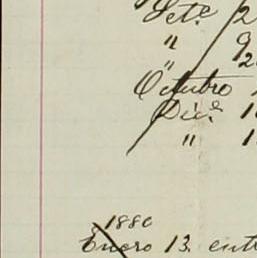 Sete 2
" 9
" 2
Outubro 1
Dice 1
" 1
1880
Enero 13. entr